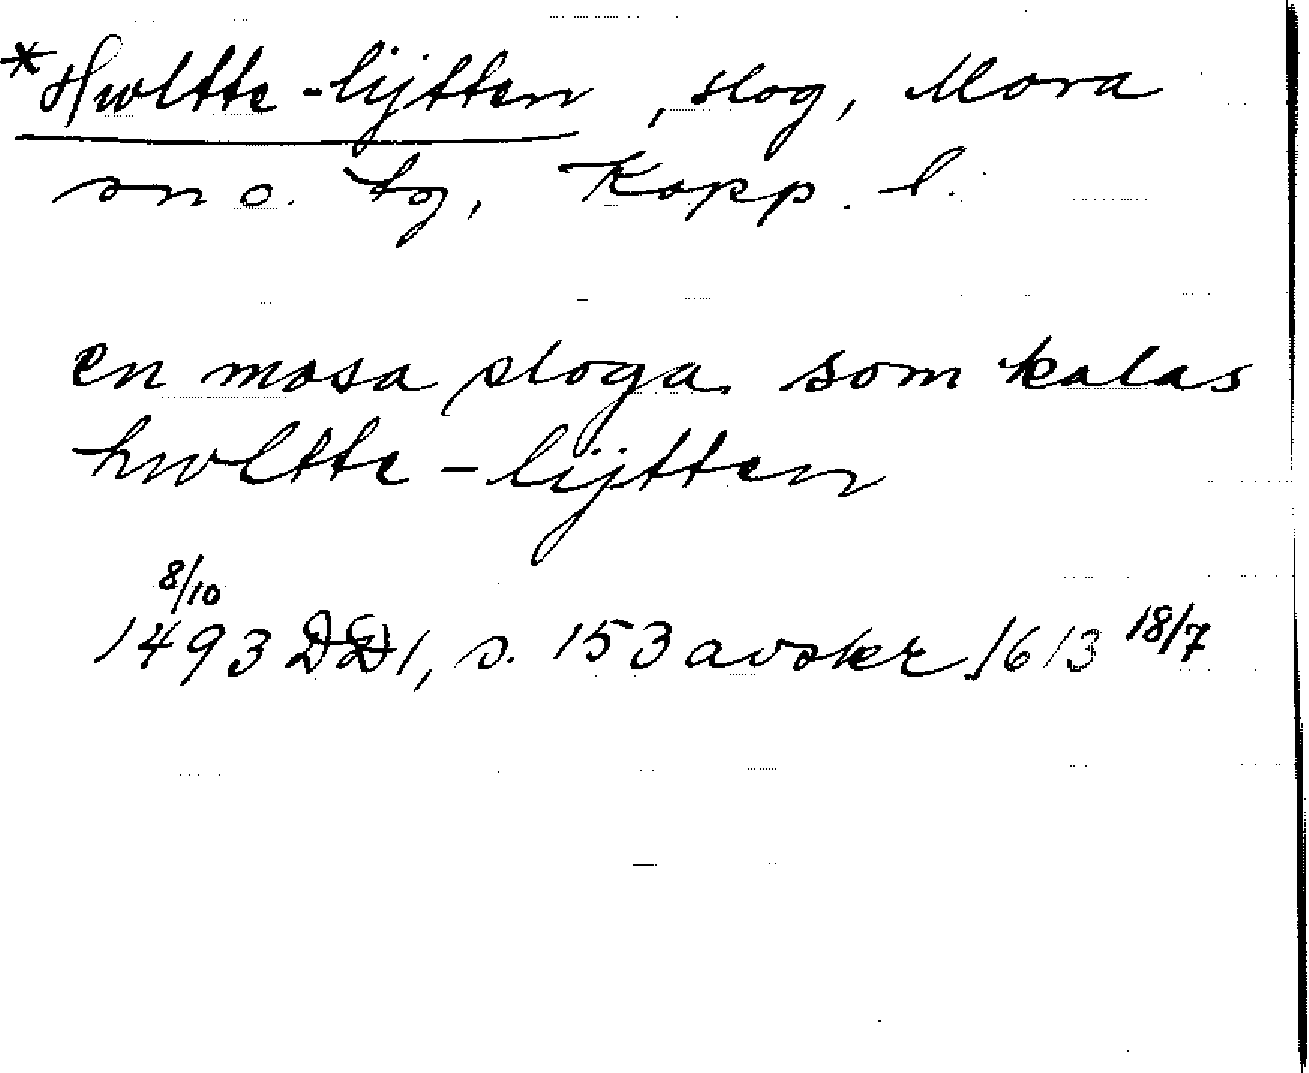 *Hwltte-lijtten, slog, Mora
sn o. tg, Kopp. l.
en mosa sloga som kalas
hwltte-lijtten
8/10
1493 DD1, s. 153 avskr. 1613 18/7